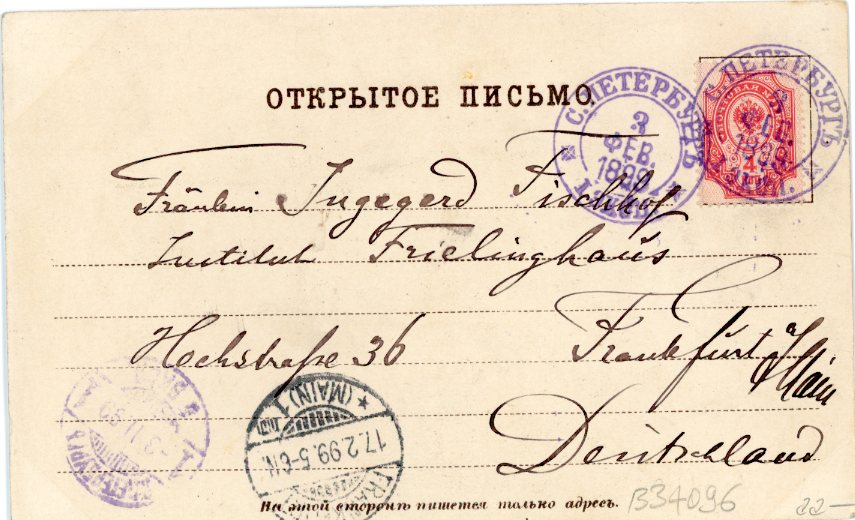 ОТКРЫТОЕ ПИСЬМО.
С. ПЕТЕРБУРГЪ
3
ФЕВ.
1899
ПЕТЕРБУРГЪ
3
1899
4
Fräulein Ingegerd Fischhof
Institut Frielinghaus
Hochstraße 36 Frankfurt a/Main
Deutschland
(MAIN) 1
17.2.99. 5-6 N.
На этой сторонѣ пишется только адресъ.
B34096
22-